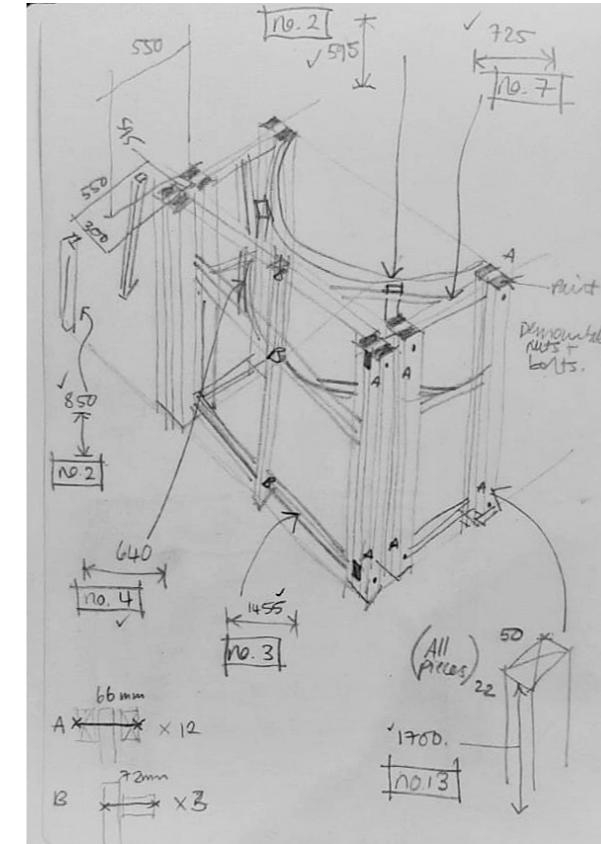 no. 2
595
725
no. 7
550
595
550
300
A
Paint
Demountable
nuts +
bolts.
B
A
A
B
850
no. 2
A
B
640
no. 4
A
A
1455
no. 3
50
(All
pieces)
22
1700.
no.13
66mm
A x 12
72mm
B x 3